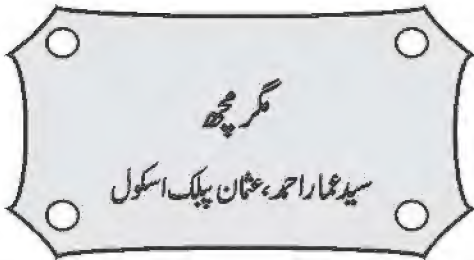 مگر مچھ
سید عمار احمد، عثمان پبلک اسکول